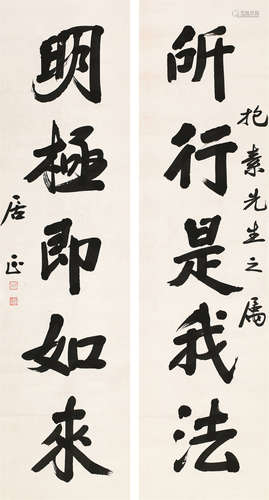 抱素先生之属
所行是我法
明極即如來
居正